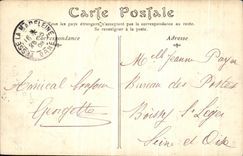 Carte Postale
Tous les pays étrangers n'acceptent pas la correspondance au recto.
Se renseigner à la poste.
Correspondance
Adresse
LA MADELEINE
Amical bonjour
Georgette
Melle Jeanne
Bureau des Postes
Boissy St Leger
Seine et Oise